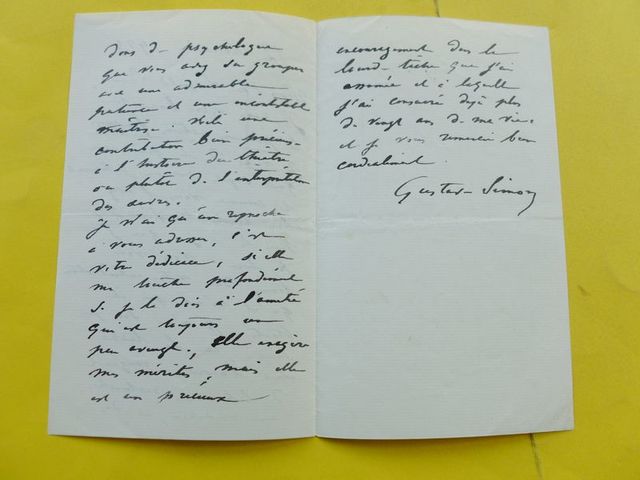 dons de psychologue
que vous avez su grouper
avec une admirable
patience et une incontestable
maîtrise. Voilà une
contribution bien précieuse
à l'histoire du théâtre
ou plutôt de l'interprétation
des œuvres.
Je n'ai qu'un reproche
à vous adresser, c'est
votre dédicace, si elle
me touche profondément
je le dois à l'amitié
qui est toujours un
peu aveugle, elle exagère
mes mérites, mais elle
est un précieux
encouragement dans la
lourde tâche que j'ai
assumée et à laquelle
j'ai consacré déjà plus
de vingt ans de ma vie
et je vous remercie bien
cordialement.
Gustave Simon